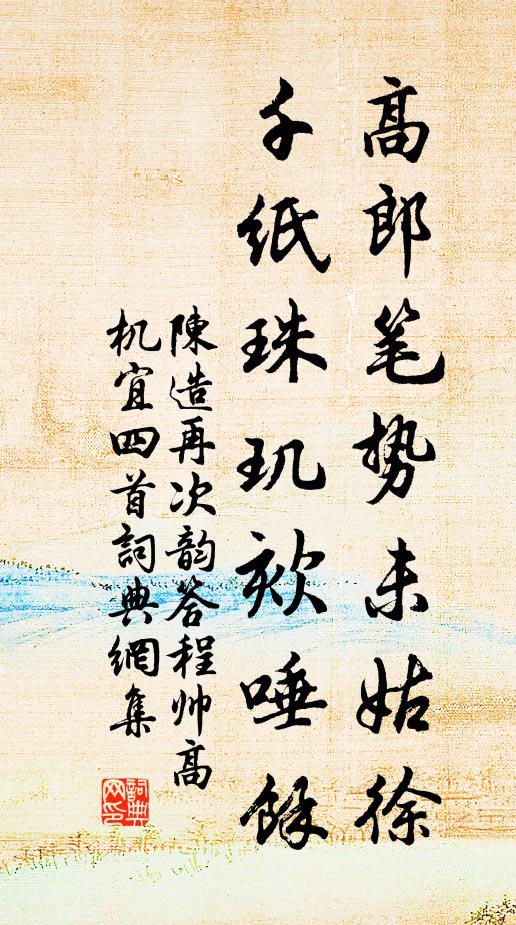 高郎笔势未姑徐
千纸珠玑欬唾餘
陳造再次韵答程帅高
机宜四首詞典網集
詞典网印